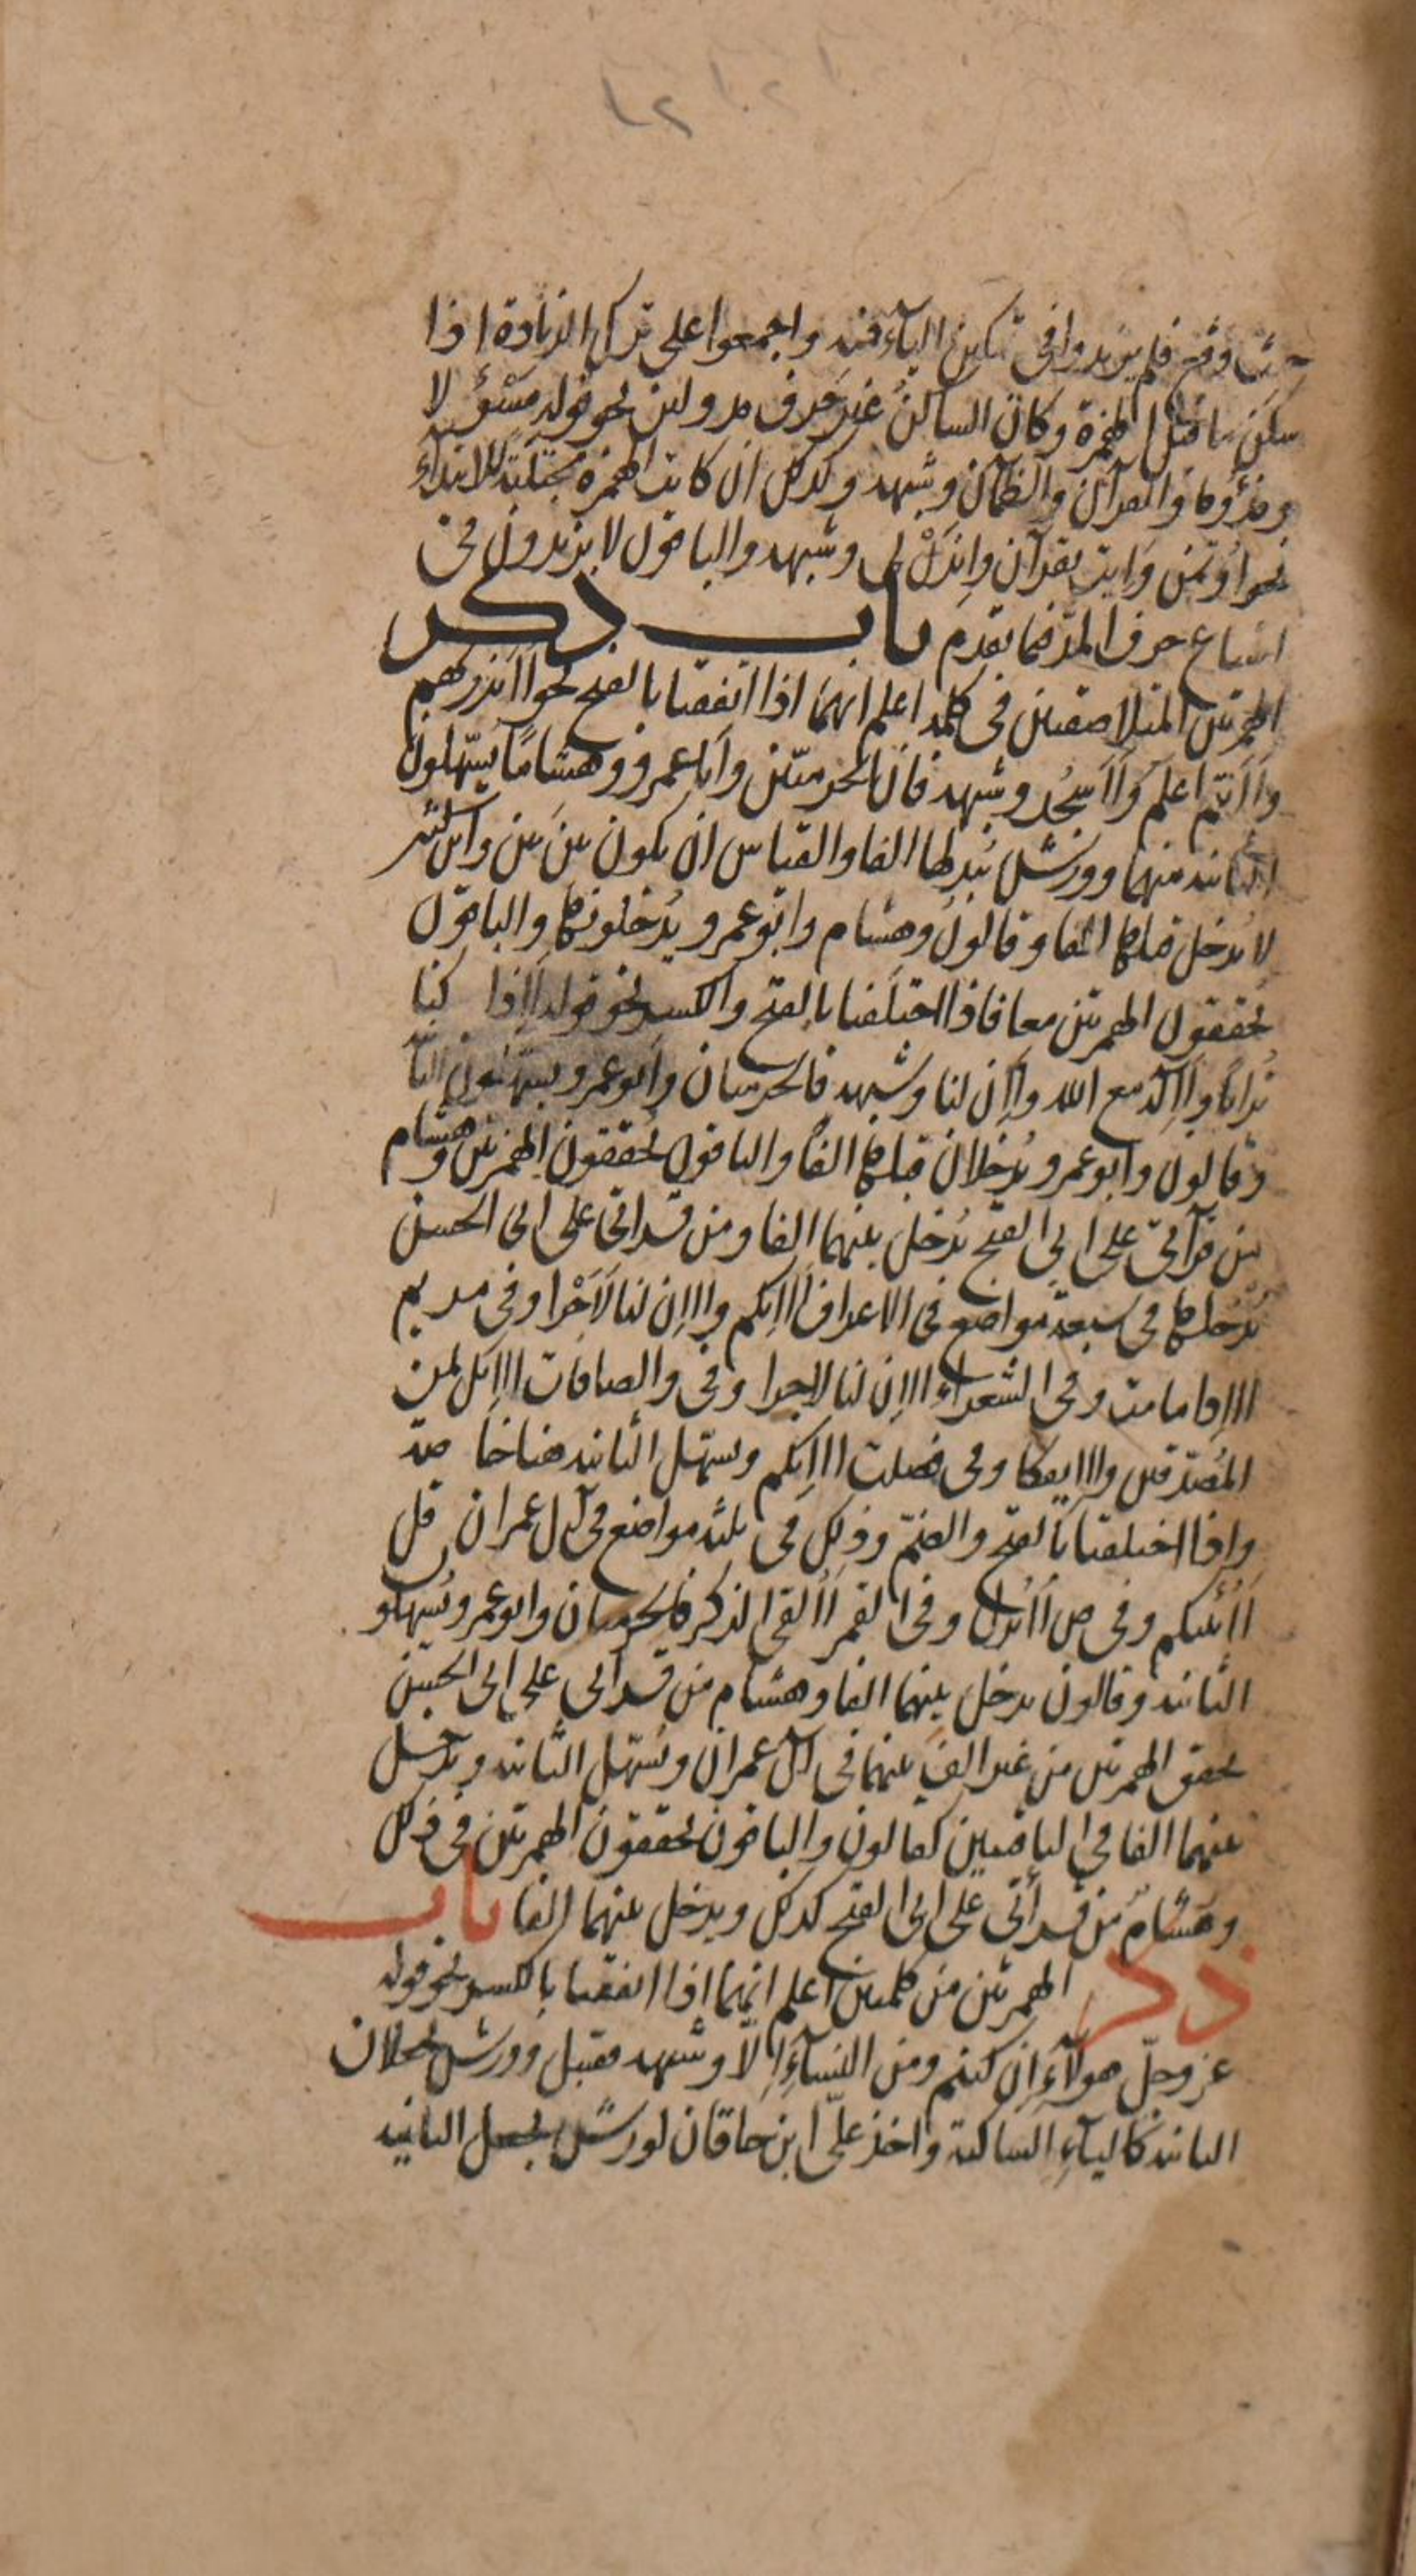 ١٢
حيث وقع فلم يزيدوا في تمكين الياء فيه واجمعوا على ترك الزيادة اذا
سكن ما قبل الهمزة وكان الساكن غير حرف مد ولين نحو قوله مسئولا
ومذؤما والقرآن والظمآن وشبهه وكذلك ان كانت الهمزة مجتلبة للابتداء
نحو اؤتمن وايت بقرآن وايذن لي وشبهه والباقون لا يزيدون في
اشباع حرف المد فيما تقدم باب ذكر
الهمزتين المتلاصقتين في كلمة اعلم انهما اذا اتفقتا بالفتح نحو أأنذرتهم
وأأنتم اعلم وأأسجد وشبهه فان الحرميين وابا عمرو وهشاما يسهلون
الثانية منهما وورش يبدلها الفا والقياس ان يكون بين بين وابن كثير
لا يدخل قبلها الفا وقالون وهشام وابو عمرو يدخلونها والباقون
يحققون الهمزتين معا فاذا اختلفتا بالفتح والكسر نحو قوله أإذا كنا
ترابا وأإله مع الله وأإن لنا وشبهه فالحرميان وابو عمرو يسهلون الثا
وقالون وابو عمرو يدخلان قبلها الفا والباقون يحققون الهمزتين وهشام
من قرآتي على ابي الفتح يدخل بينهما الفا ومن قراتي على ابي الحسن
يدخلها في سبعة مواضع في الاعراف أاإنكم وااإن لنا لأجرا وفي مريم
ااإذا ما مت وفي الشعراء ااإن لنا لاجرا وفي والصافات ااإنك لمن
المصدقين وااإيفكا وفي فصلت ااإنكم ويسهل الثانية هنا خاصة
واذا اختلفتا بالفتح والضم وذلك في ثلثة مواضع في آل عمران قل
أأنبئكم وفي ص أأنزل وفي القمر أألقي الذكر فالحرميان وابو عمرو يسهلو
الثانية وقالون يدخل بينهما الفا وهشام من قراتي على ابي الحسن
يحقق الهمزتين من غير الف بينهما في آل عمران ويسهل الثانية ويدخل
بينهما الفا في الباقيين كقالون والباقون يحققون الهمزتين في ذلك
وهشام من قرأتي على ابي الفتح كذلك ويدخل بينهما الفا باب
ذكر الهمزتين من كلمتين اعلم انهما اذا اتفقتا بالكسر نحو قوله
عز وجل هولاء إن كنتم ومن النساء إلا وشبهه فقنبل وورش يجعلان
الثانية كالياء الساكنة واخذ علي ابن خاقان لورش بجعل الثانية